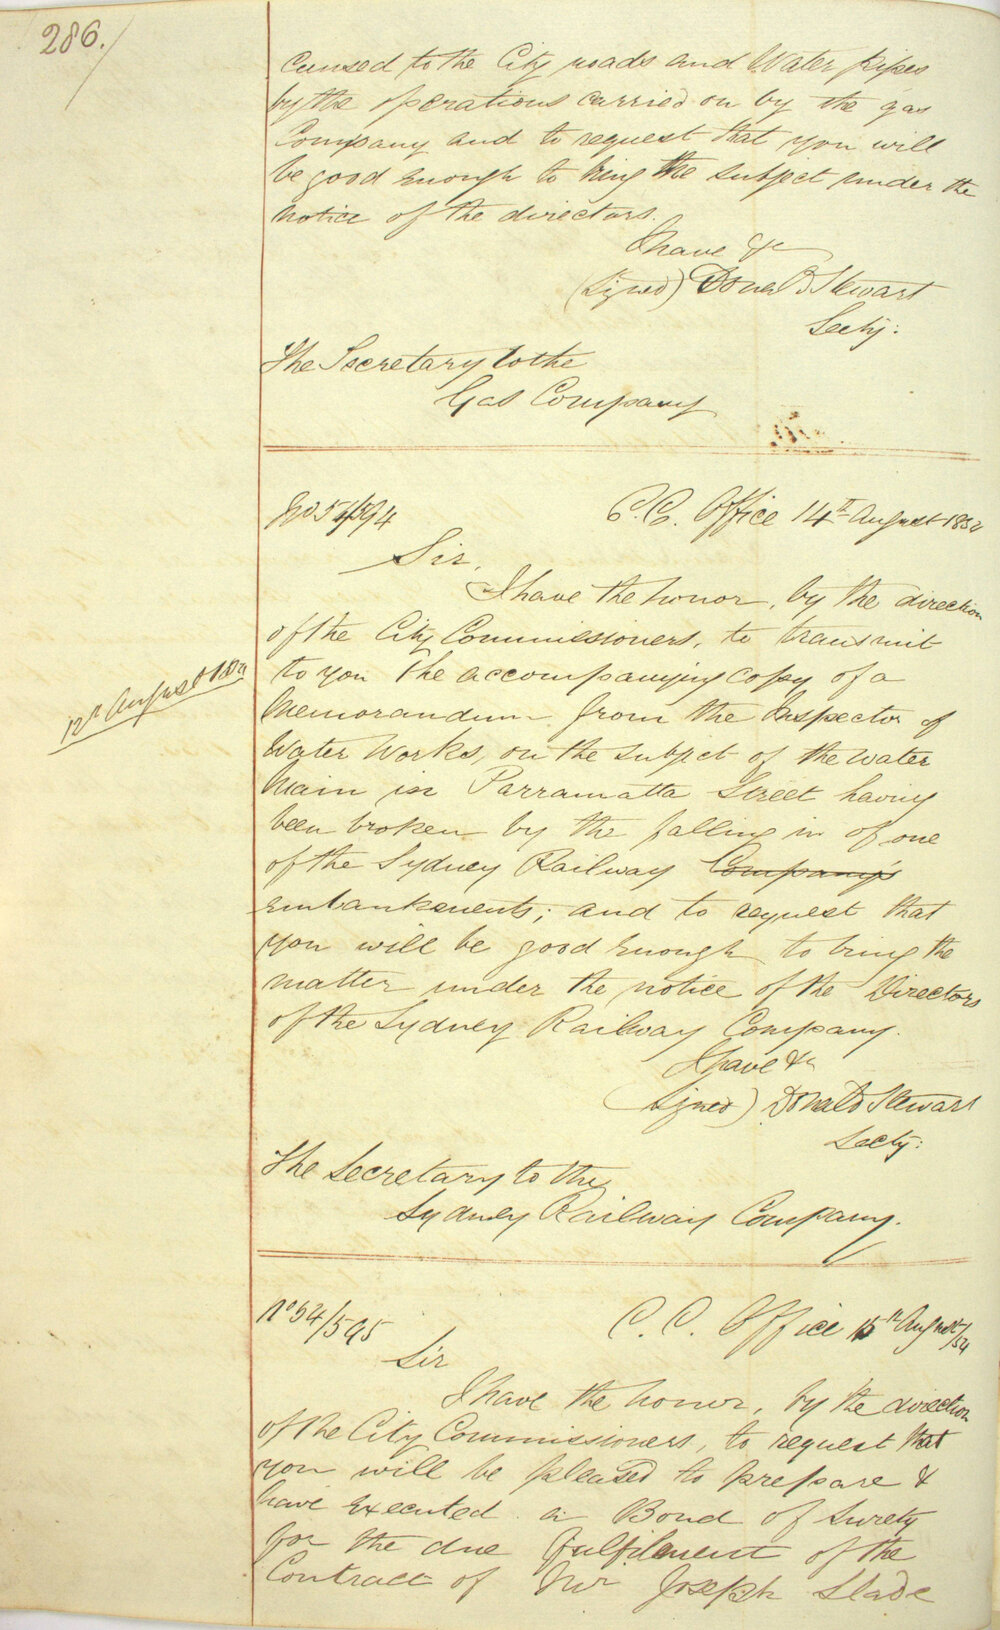 286.
caused to the City roads and Water pipes
by the operations carried on by the gas
Company and to request that you will
be good enough to bring the subject under the
notice of the directors.
I have &c
(signed) Donald Stewart
Secty:
The Secretary to the
Gas Company
No 54/594
C. C. Office 14th August 1854
Sir,
I have the honor, by the direction
of the City Commissioners, to transmit
to you the accompanying copy of a
12th August 1854
Memorandum from the Inspector of
Water Works, on the subject of the water
Main in Parramatta Street having
been broken by the falling in of one
of the Sydney Railway Company's
embankments; and to request that
you will be good enough to bring the
matter under the notice of the Directors
of the Sydney Railway Company.
I have &c
(signed) Donald Stewart
Secty:
The Secretary to the
Sydney Railway Company.
No 54/595
C. C. Office 15th August/54
Sir
I have the honor, by the direction
of the City Commissioners, to request that
you will be pleased to prepare &
have executed a Bond of Surety
for the due fulfilment of the
Contract of Mr Joseph Slade